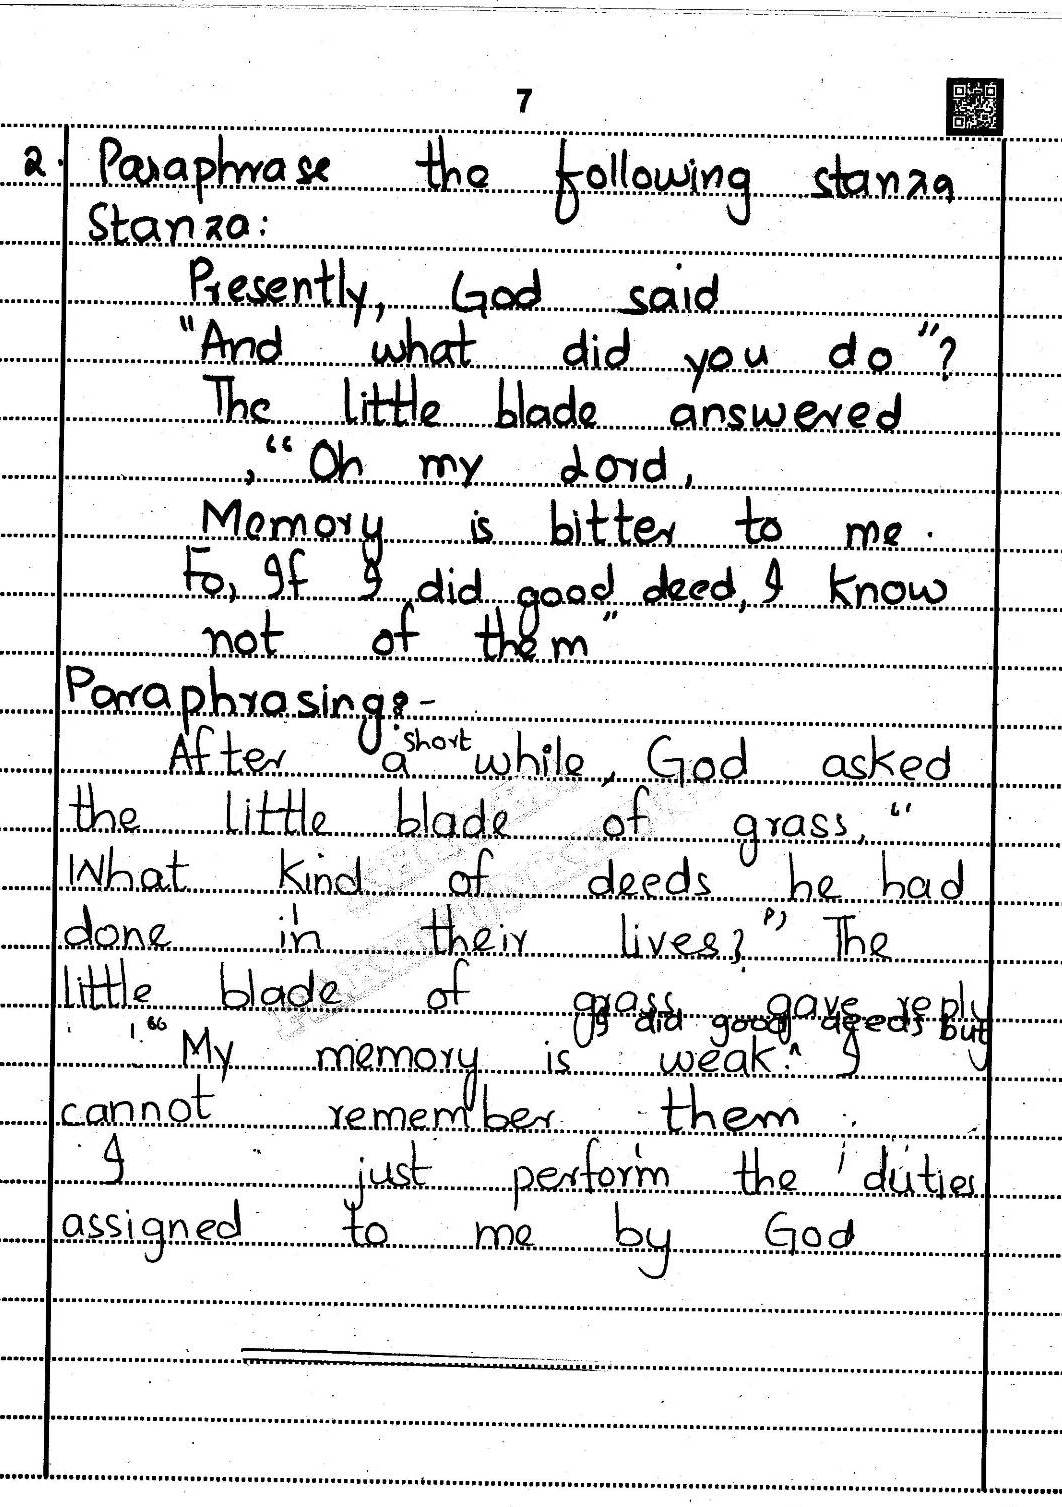 7
2. Paraphrase the following stanza
Stanza:
Presently, God said
"And what did you do"?
The little blade answered
,"Oh my Lord,
Memory is bitter to me.
Fo, If I did good deed, I know
not of them"
Paraphrasing:-
After a short while, God asked
the little blade of grass, "
What kind of deeds he had
done in their lives?" The
little blade of grass gave reply
"My memory is weak. I did good deeds but I
cannot remember them.
I just perform the duties
assigned to me by God